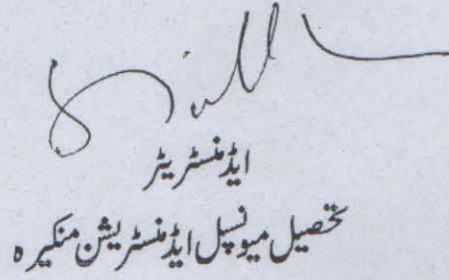 ایڈمنسٹریٹر
تحصیل میونسپل ایڈمنسٹریشن منکیرہ